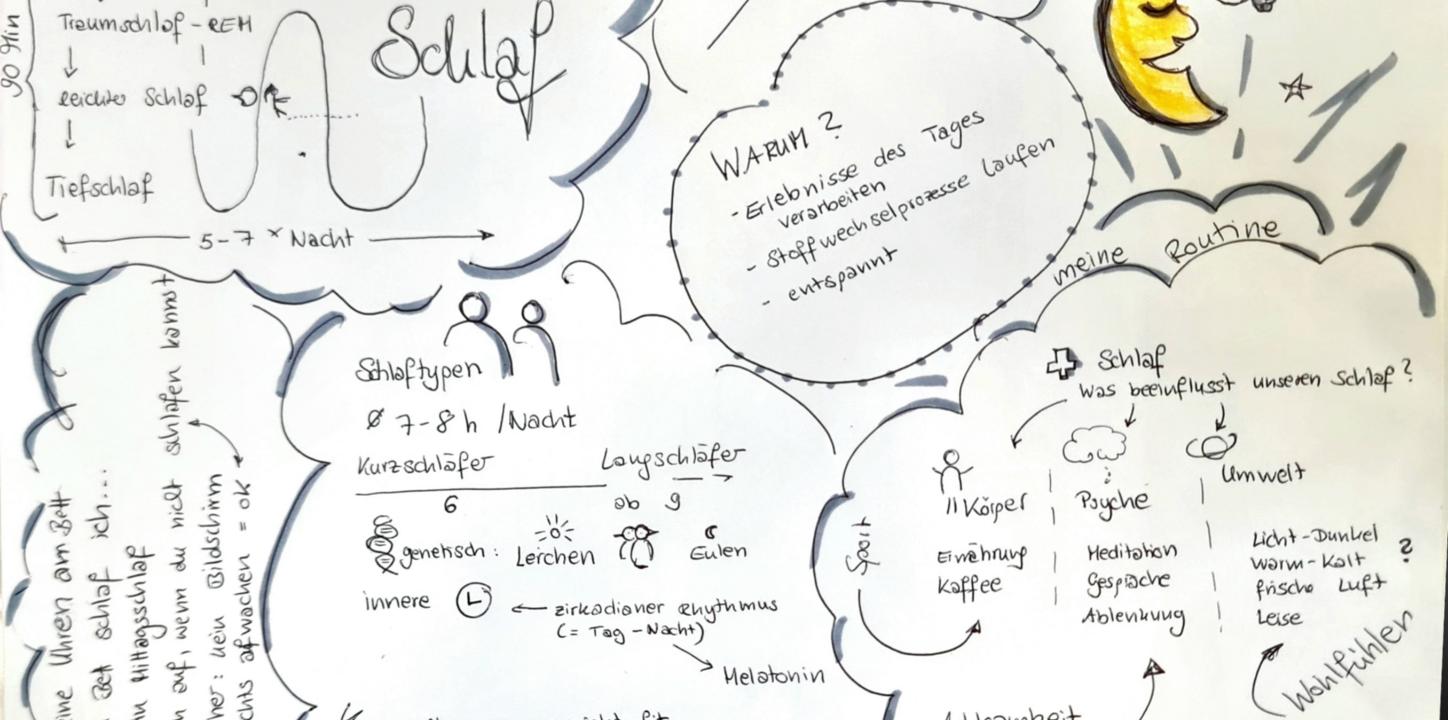 90 Min
Traumschlaf - REM
leichter Schlaf
Tiefschlaf
5-7 x Nacht
Schlaf
WARUM?
- Erlebnisse des Tages
verarbeiten
- Stoffwechselprozesse laufen
- entspannt
meine Routine
Schlaftypen
Ø 7-8 h /Nacht
Kurzschläfer
6
Langschläfer
ab 9
genetisch: Lerchen
Eulen
innere
zirkadianer Rhythmus
(= Tag-Nacht)
Melatonin
Schlaf
Was beeinflusst unseren Schlaf?
Körper
Psyche
Umwelt
Sport
Ernährung
Kaffee
Meditation
Gespräche
Ablenkung
Licht-Dunkel
Warm-Kalt
frische Luft
Leise
?
Wohlfühlen
Uhren am Bett
Bett schlaf ich...
Mittagsschlaf
auf, wenn du nicht schlafen kannst
kein Bildschirm
aufwachen = OK